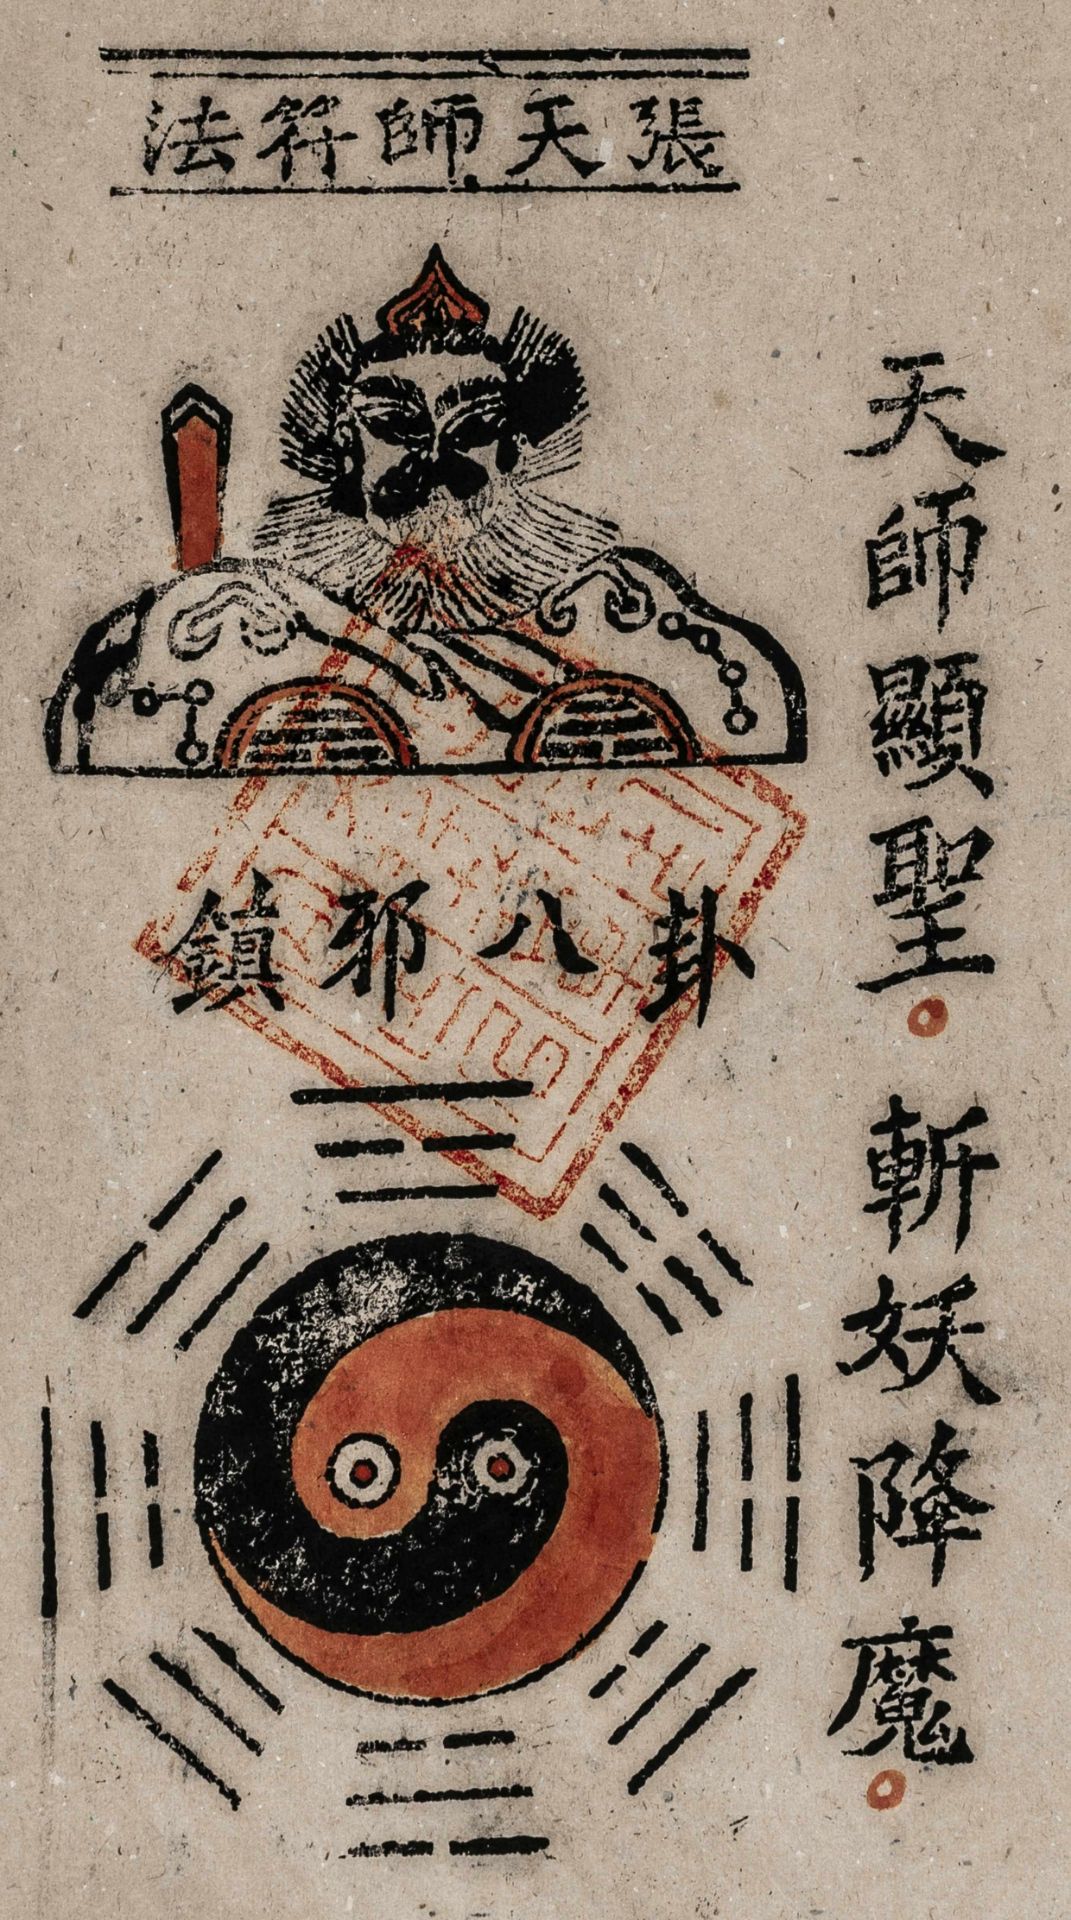 張天師符法
天師顯聖。斬妖降魔。
卦八邪鎮